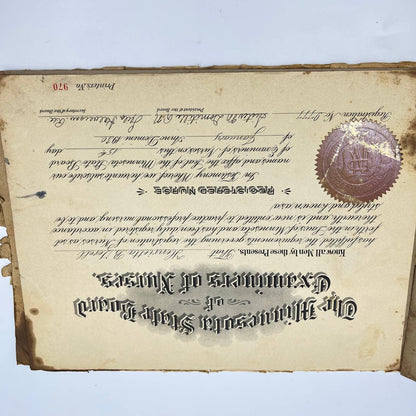 The Minnesota State Board
of
Examiners of Nurses.
Know all Men by these Presents, That
has fulfilled the requirements governing the registration of Nurses as set
forth in the Laws of Minnesota and has been duly registered in accordance
therewith and is now entitled to practice professional nursing and to be
styled and known as a
REGISTERED NURSE
In Testimony Whereof we hereunto subscribe our
names and affix the Seal of the Minnesota State Board
of Examiners of Nurses on this 15th day
of January Anno Domini 1920
Registration No.
President of the Board
Secretary of the Board
Printer's No. 970